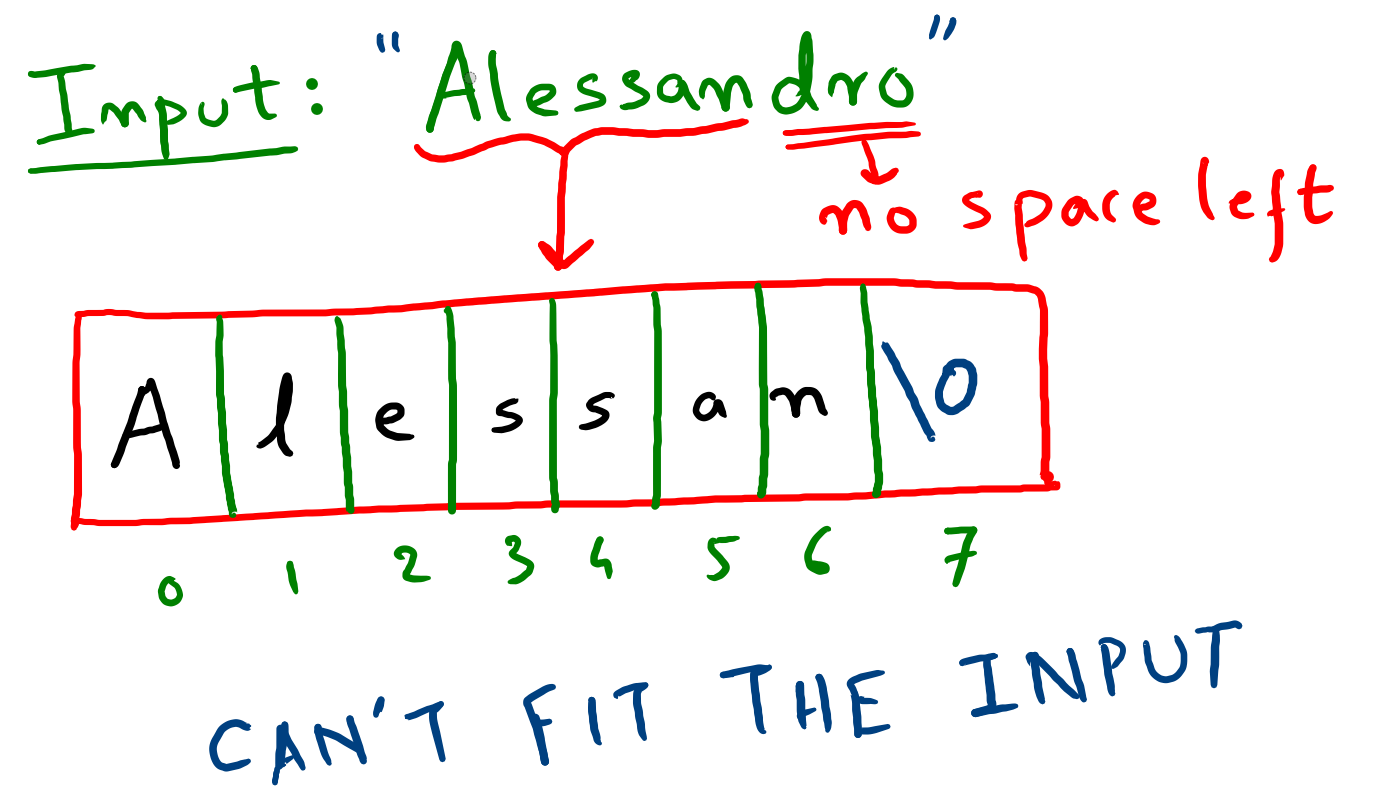 Input: "Alessandro"
no space left
A l e s s a n \0
0 1 2 3 4 5 6 7
CAN'T FIT THE INPUT